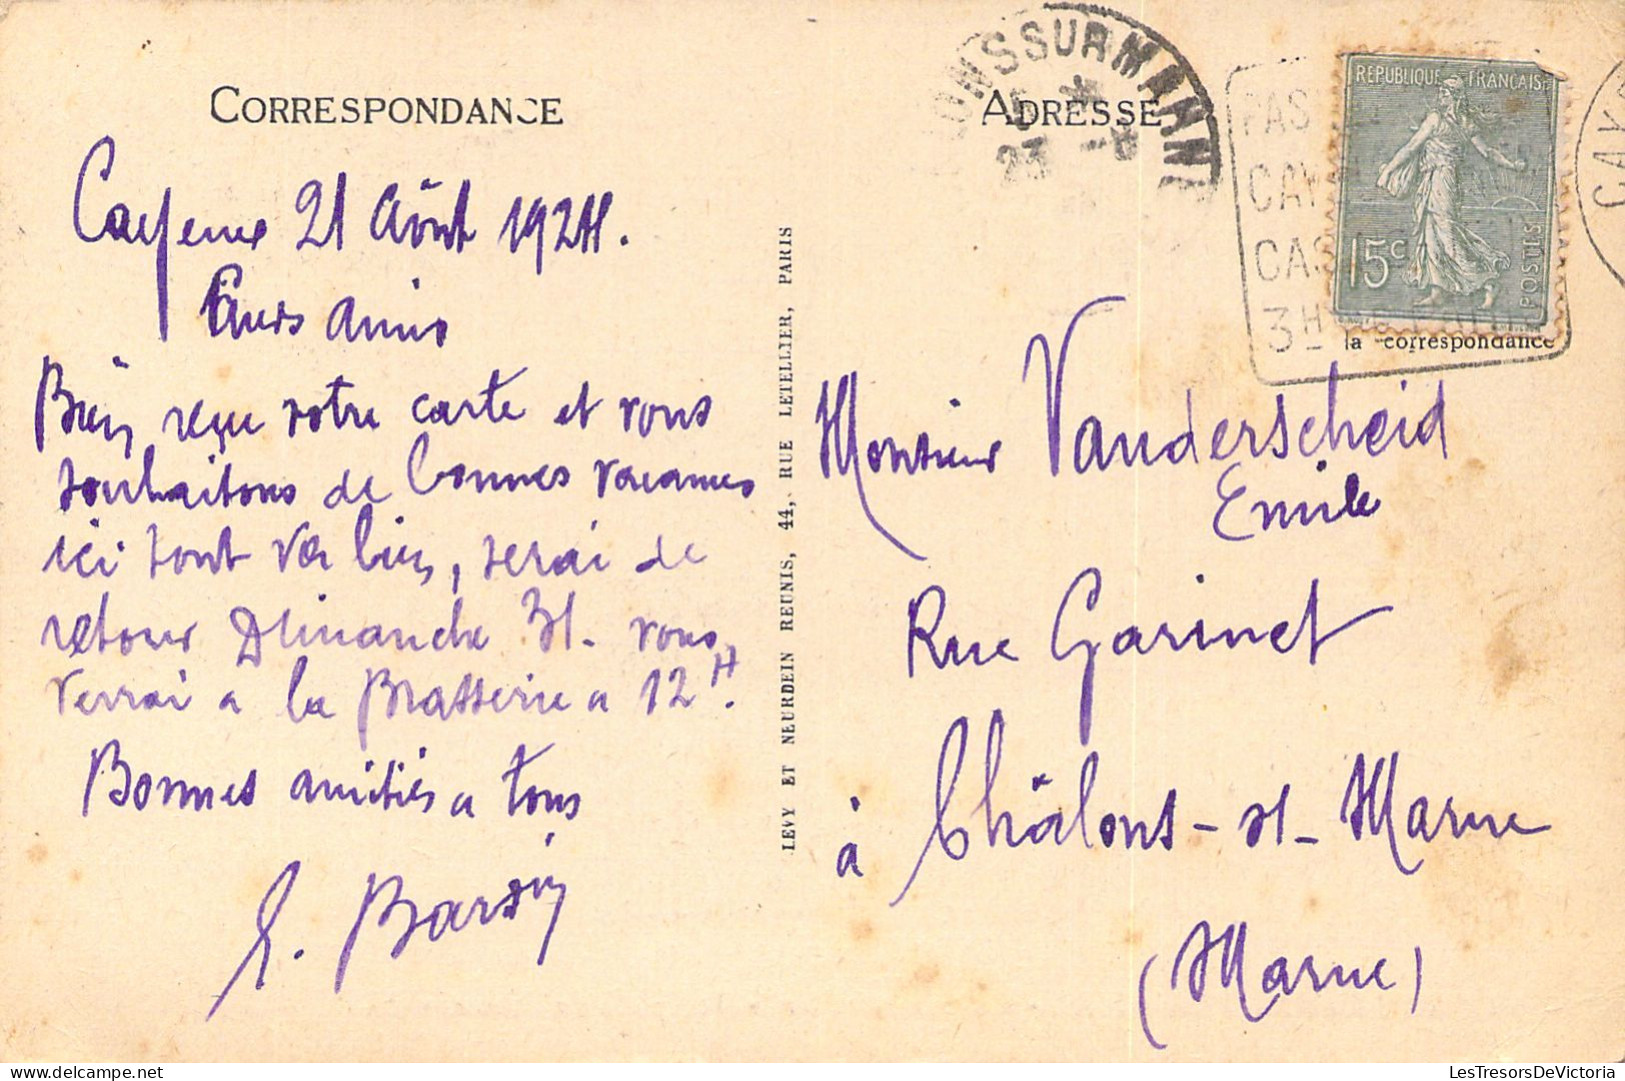 CORRESPONDANCE
Cayeux 21 Aôut 1924.
Chers amis
Bien reçu votre carte et vous
souhaitons de bonnes vacances
ici tout va bien, serai de
retour Dimanche 31. vous
verrai a la Brasserie a 12H.
Bonnes amitiés a tous
LEVY ET NEURDEIN REUNIS, 44, RUE LETELLIER, PARIS
ADRESSE
SSURMARN
23 -8
CAY
3H
REPUBLIQUE FRANÇAISE
15c
POSTES
la correspondance
Monsieur Vanderscheid
Emile
Rue Garinet
à Châlons-s-Marne
(Marne)
LesTresorsDeVictoria